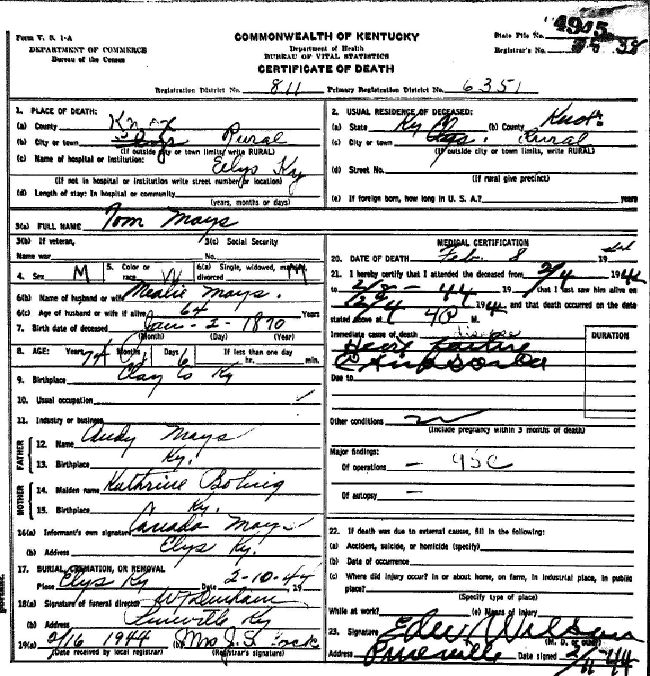 Form V. S. 1-A
DEPARTMENT OF COMMERCE
Bureau of the Census
COMMONWEALTH OF KENTUCKY
Department of Health
BUREAU OF VITAL STATISTICS
CERTIFICATE OF DEATH
State File No. 4945
Registrar's No.
Registration District No. 811 Primary Registration District No. 6351
1. PLACE OF DEATH:
(a) County Knox
(b) City or town Rural
(If outside city or town limits, write RURAL)
(c) Name of hospital or institution: Elys Ky
(If not in hospital or institution write street number or location)
(d) Length of stay: In hospital or community
(years, months or days)
2. USUAL RESIDENCE OF DECEASED:
(a) State Ky (b) County Knox
(c) City or town Rural
(If outside city or town limits, write RURAL)
(d) Street No.
(If rural give precinct)
(e) If foreign born, how long in U. S. A.? years
3(a) FULL NAME Tom Mays
3(b) If veteran, Name war
3(c) Social Security No.
4. Sex M
5. Color or race W
6(a) Single, widowed, divorced
6(b) Name of husband or wife Mealie Mays
6(c) Age of husband or wife if alive 64 Years
7. Birth date of deceased Jan - 2 - 1870
(Month) (Day) (Year)
8. AGE: Years 74 Months Days 6 If less than one day hr. min.
9. Birthplace Clay Co Ky
10. Usual occupation
11. Industry or business
FATHER
12. Name Andy Mays
13. Birthplace Ky.
MOTHER
14. Maiden name Kathrine Boling
15. Birthplace Ky.
16(a) Informant's own signature Canada Mays
(b) Address Elys Ky.
17. BURIAL, CREMATION, OR REMOVAL
Place Elys Ky Date 2-10-44 19
18(a) Signature of funeral director
(b) Address Pineville Ky
19(a) 2/16 1944 (b) Mrs J. S.
(Date received by local registrar) (Registrar's signature)
MEDICAL CERTIFICATION
20. DATE OF DEATH Feb. 8 19
21. I hereby certify that I attended the deceased from 2/4 1944
to 2/8 - 44, that I last saw him alive on
1944 and that death occurred on the date
stated above at M.
Immediate cause of death
Heart failure
DURATION
Due to
Other conditions
(Include pregnancy within 3 months of death)
Major findings:
Of operations — 95c
Of autopsy —
22. If death was due to external causes, fill in the following:
(a) Accident, suicide, or homicide (specify)
(b) Date of occurrence
(c) Where did injury occur? in or about home, on farm, in industrial place, in public place?
(Specify type of place)
While at work? (e) Means of injury
23. Signature Edw Wilson
(M. D. or other)
Address Pineville Date signed 2/11-44